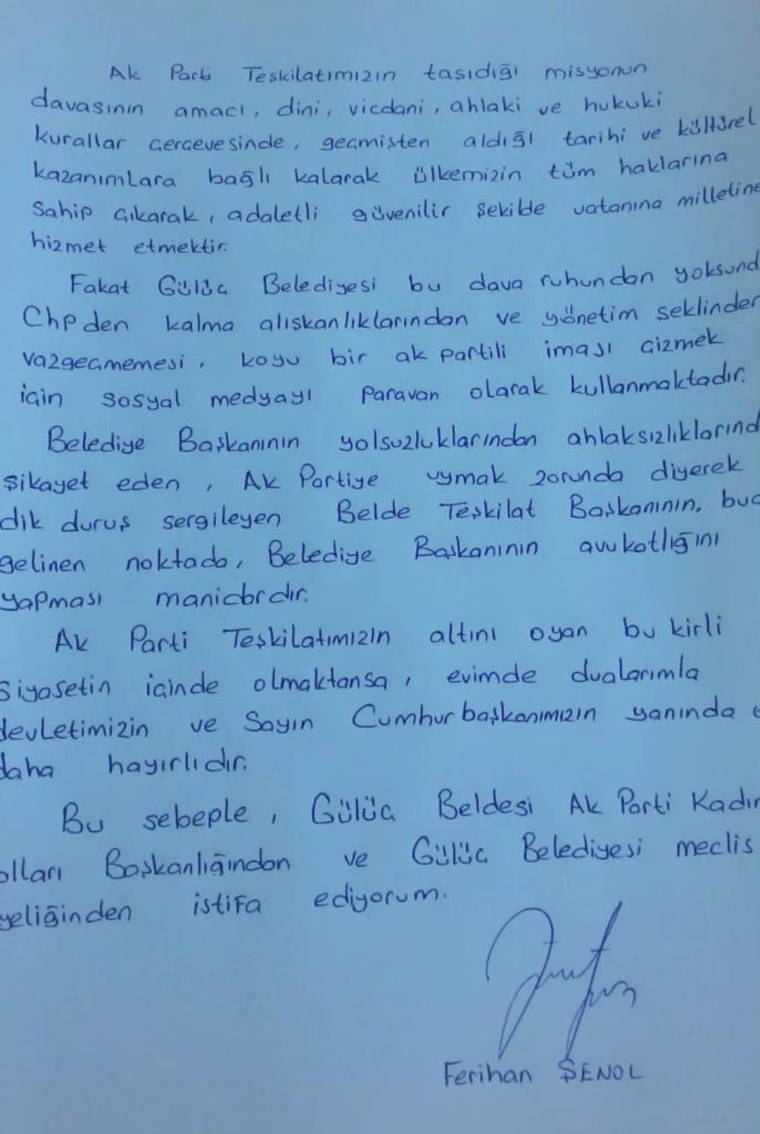 Ak Parti Teşkilatımızın taşıdığı misyonun
davasının amacı, dini, vicdani, ahlaki ve hukuki
kurallar çerçevesinde, geçmişten aldığı tarihi ve kültürel
kazanımlara bağlı kalarak ülkemizin tüm haklarına
sahip çıkarak, adaletli güvenilir şekilde vatanına milletine
hizmet etmektir.
Fakat Gülüç Belediyesi bu dava ruhundan yoksund
Chp den kalma alışkanlıklarından ve yönetim şeklinden
vazgeçmemesi, koyu bir ak partili imajı çizmek
için sosyal medyayı paravan olarak kullanmaktadır.
Belediye Başkanının yolsuzluklarından ahlaksızlıklarınd
şikayet eden, Ak Partiye uymak zorunda diyerek
dik duruş sergileyen Belde Teşkilat Başkanının, bug
gelinen noktada, Belediye Başkanının avukatlığını
yapması manidardır.
Ak Parti Teşkilatımızın altını oyan bu kirli
siyasetin içinde olmaktansa, evimde dualarımla
devletimizin ve Sayın Cumhurbaşkanımızın yanında
daha hayırlıdır.
Bu sebeple, Gülüç Beldesi Ak Parti Kadın
olları Başkanlığından ve Gülüç Belediyesi meclis
yeliğinden istifa ediyorum.
Ferihan ŞENOL